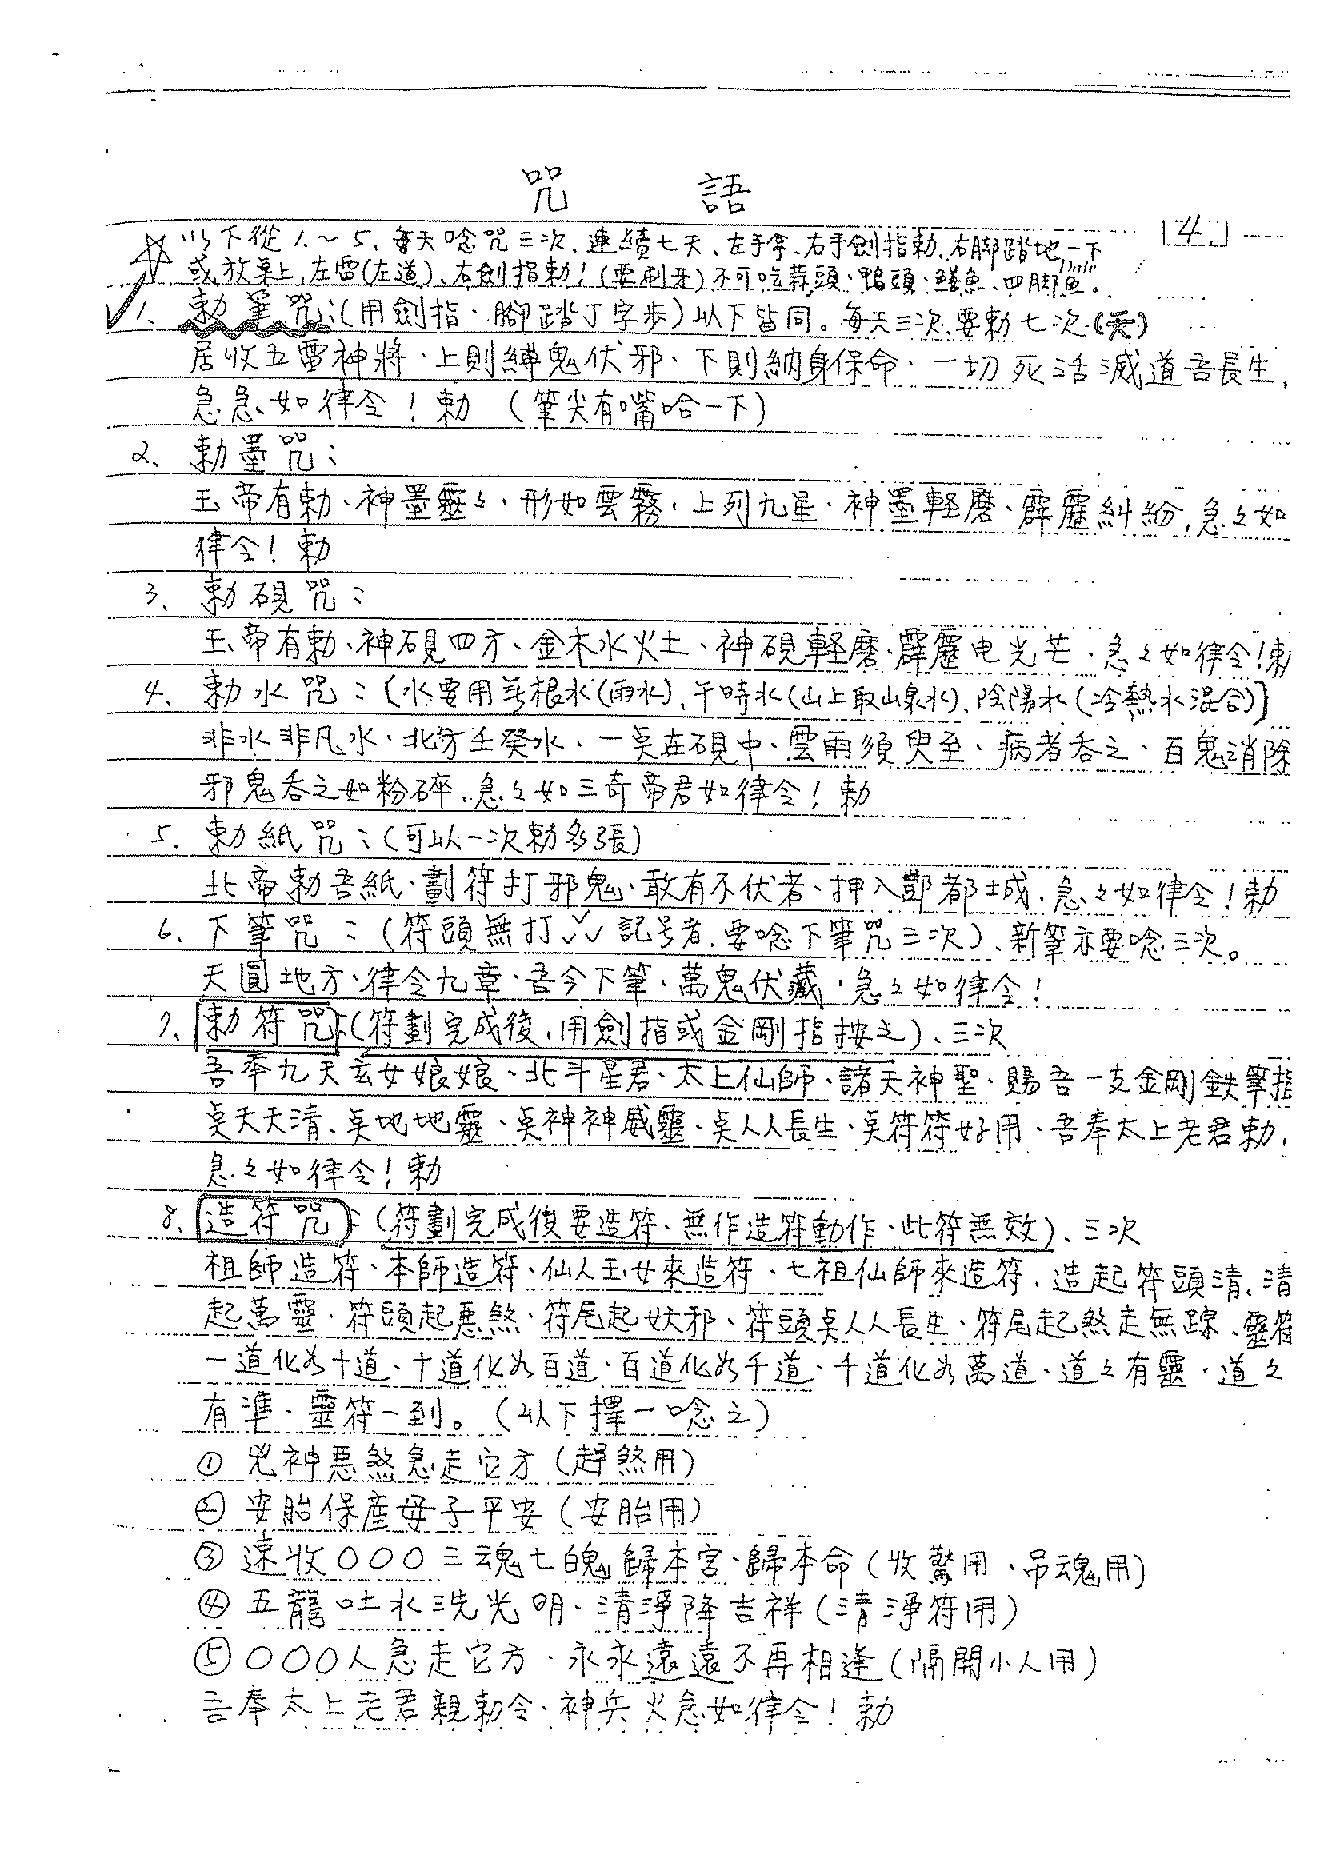 咒 語
「4」
以下從1～5、每天唸咒三次、連續七天、左手拿、右手劍指勅、右脚踏地一下
或放桌上、左雷(左道)、右劍指勅！(要刷牙)不可吃蒜頭、鴨頭、鱔魚、四脚魚。
1、勅筆咒：(用劍指、腳踏丁字步)以下皆同。每天三次、要勅七次(天)
居收五雷神將、上則縛鬼伏邪、下則納身保命、一切死活滅道吾長生、
急急如律令！勅 (筆尖有嘴哈一下)
2、勅墨咒：
玉帝有勅、神墨靈々、形如雲霧、上列九星、神墨輕磨、霹靂糾紛、急々如
律令！勅
3、勅硯咒：
玉帝有勅、神硯四方、金木水火土、神硯輕磨、霹靂电光芒、急々如律令！勅
4、勅水咒：〔水要用無根水(雨水)、午時水(山上取山泉水)、陰陽水(冷熱水混合)〕
非水非凡水、北方壬癸水、一点在硯中、雲雨須臾至、病者吞之、百鬼消除
邪鬼吞之如粉碎、急々如三奇帝君如律令！勅
5、勅紙咒：(可以一次勅多張)
北帝勅吾紙、劃符打邪鬼、敢有不伏者、押入酆都城、急々如律令！勅
6、下筆咒：(符頭無打✓✓✓記号者、要唸下筆咒三次)、新筆亦要唸三次。
天圓地方、律令九章、吾今下筆、萬鬼伏藏、急々如律令！
7、勅符咒：(符劃完成後、用劍指或金剛指按之)、三次
吾奉九天玄女娘娘、北斗星君、太上仙師、諸天神聖、賜吾一支金剛鉄筆指
点天天清、点地地靈、点神神威靈、点人人長生、点符符好用、吾奉太上老君勅、
急々如律令！勅
8、造符咒：(符劃完成後要造符、無作造符動作、此符無效)、三次
祖師造符、本師造符、仙人玉女來造符、七祖仙師來造符、造起符頭清、清
起萬靈、符頭起惡煞、符尾起妖邪、符頭点人人長生、符尾起煞走無踪、靈符
一道化为十道、十道化为百道、百道化为千道、千道化为萬道、道々有靈、道々
有準、靈符一到。(以下擇一唸之)
① 兇神惡煞急走它方(趕煞用)
② 安胎保產母子平安(安胎用)
③ 速收〇〇〇三魂七魄歸本宮、歸本命(收驚用、吊魂用)
④ 五龍吐水洗光明、清淨降吉祥(清淨符用)
⑤ 〇〇〇人急走它方、永永遠遠不再相逢(隔開小人用)
吾奉太上老君親勅令、神兵火急如律令！勅